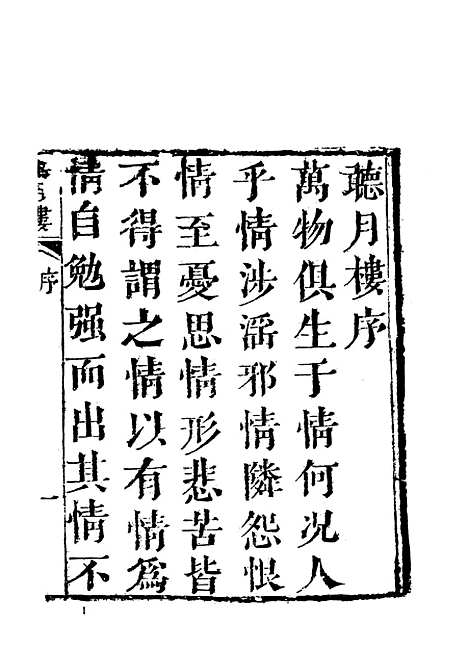 聽月樓序
萬物俱生于情何况人
乎情涉滛邪情隣怨恨
情至憂思情形悲苦皆
不得謂之情以有情爲
情自勉强而出其情不
樓
序
一
1